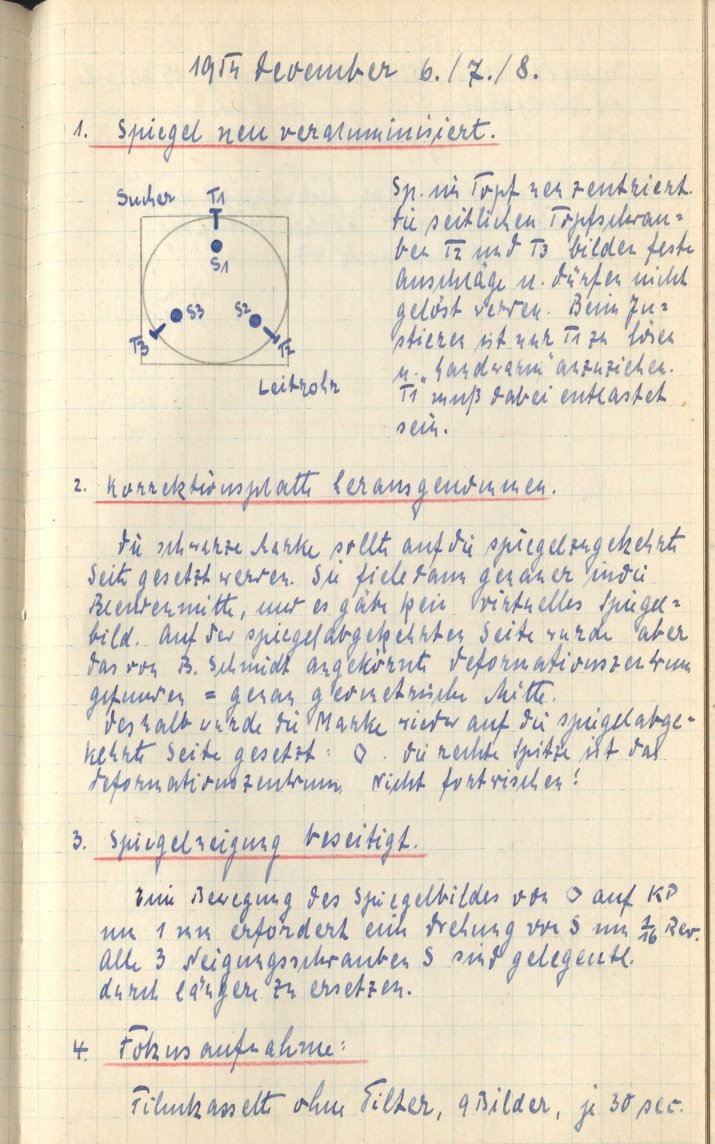 1954 Dezember 6./7./8.
1. Spiegel neu veraluminisiert.
Sucher T1
S1
S3 S2
T3 T2
Leitrohr
Sp. im Topf neu zentriert.
Die seitlichen Topfschrau=
ben T2 und T3 bilden feste
Anschläge u. dürfen nicht
gelöst werden. Beim Ju=
stieren ist nur T1 zu lösen
u. „handwarm" anzuziehen.
T1 muß dabei entlastet
sein.
2. Korrektionsplatte herausgenommen.
Die schwarze Marke sollte auf die spiegelzugekehrte
Seite gesetzt werden. Sie fiele dann genauer in die
Blendenmitte, und es gäbe kein virtuelles Spiegel=
bild. Auf der spiegelabgekehrten Seite wurde aber
das von B. Schmidt angekörnte Deformationszentrum
gefunden = genau geometrische Mitte.
Deshalb wurde die Marke wieder auf die spiegelabge=
kehrte Seite gesetzt: ◇. Die rechte Spitze ist das
Deformationszentrum. Nicht fortwischen!
3. Spiegelneigung beseitigt.
Eine Bewegung des Spiegelbildes von ◇ auf KP
um 1 mm erfordert eine Drehung von S um 1/16 Rev.
Alle 3 Neigungsschrauben S sind gelegentl.
durch längere zu ersetzen.
4. Fokusaufnahme:
Filmkassette ohne Filter, 9 Bilder, je 30 sec.